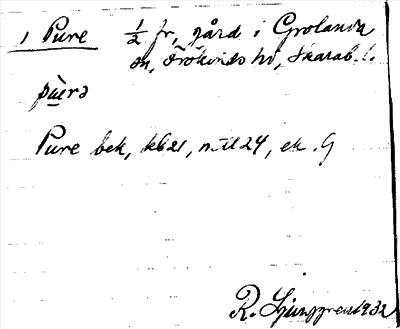 1 Pure ½ fr, gård i Grolanda
sn, Frökinds hd, Skarab. l.
pùrə
Pure bek, kb21, mtl24, ek. G
R. Ljunggren 1932